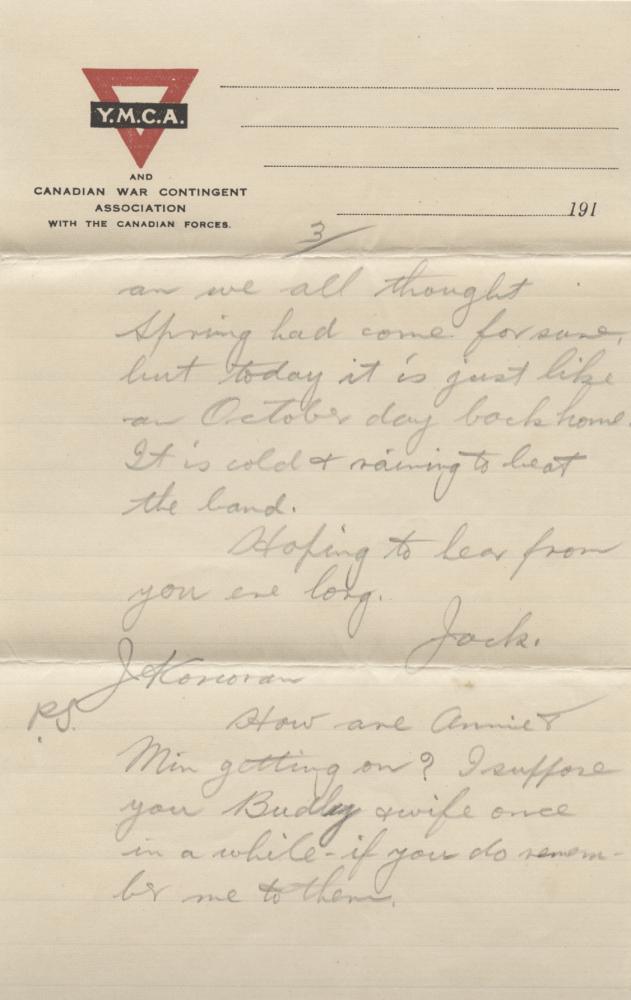 Y.M.C.A.
AND
CANADIAN WAR CONTINGENT
ASSOCIATION
WITH THE CANADIAN FORCES.
191
3/
an we all thought
Spring had come for sure,
but today it is just like
an October day back home.
It is cold & raining to beat
the band.
Hoping to hear from
you ere long.
Jack.
J Korcoran
P.S. How are Annie &
Min getting on? I suppose
you Budley & wife once
in a while - if you do remem-
ber me to them.